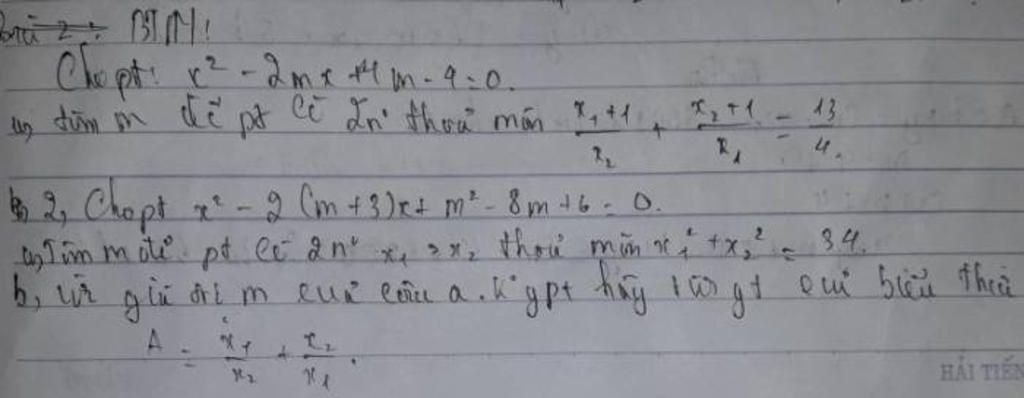 Bài 2: BTN!
Cho pt: x² - 2mx + 4m - 4 = 0.
a, tìm m để pt có 2n⁰ thoả mãn \frac{x_1+1}{x_2} + \frac{x_2+1}{x_1} = \frac{13}{4}.
2, Cho pt x² - 2(m+3)x + m² - 8m + 6 = 0.
a, Tìm m để pt có 2n⁰ x_1, x_2 thoả mãn x_1² + x_2² = 34.
b, với giá trị m của câu a. k⁰ g pt hãy tính gt của biểu thức
A = \frac{x_1}{x_2} + \frac{x_2}{x_1}.
HẢI TIẾN